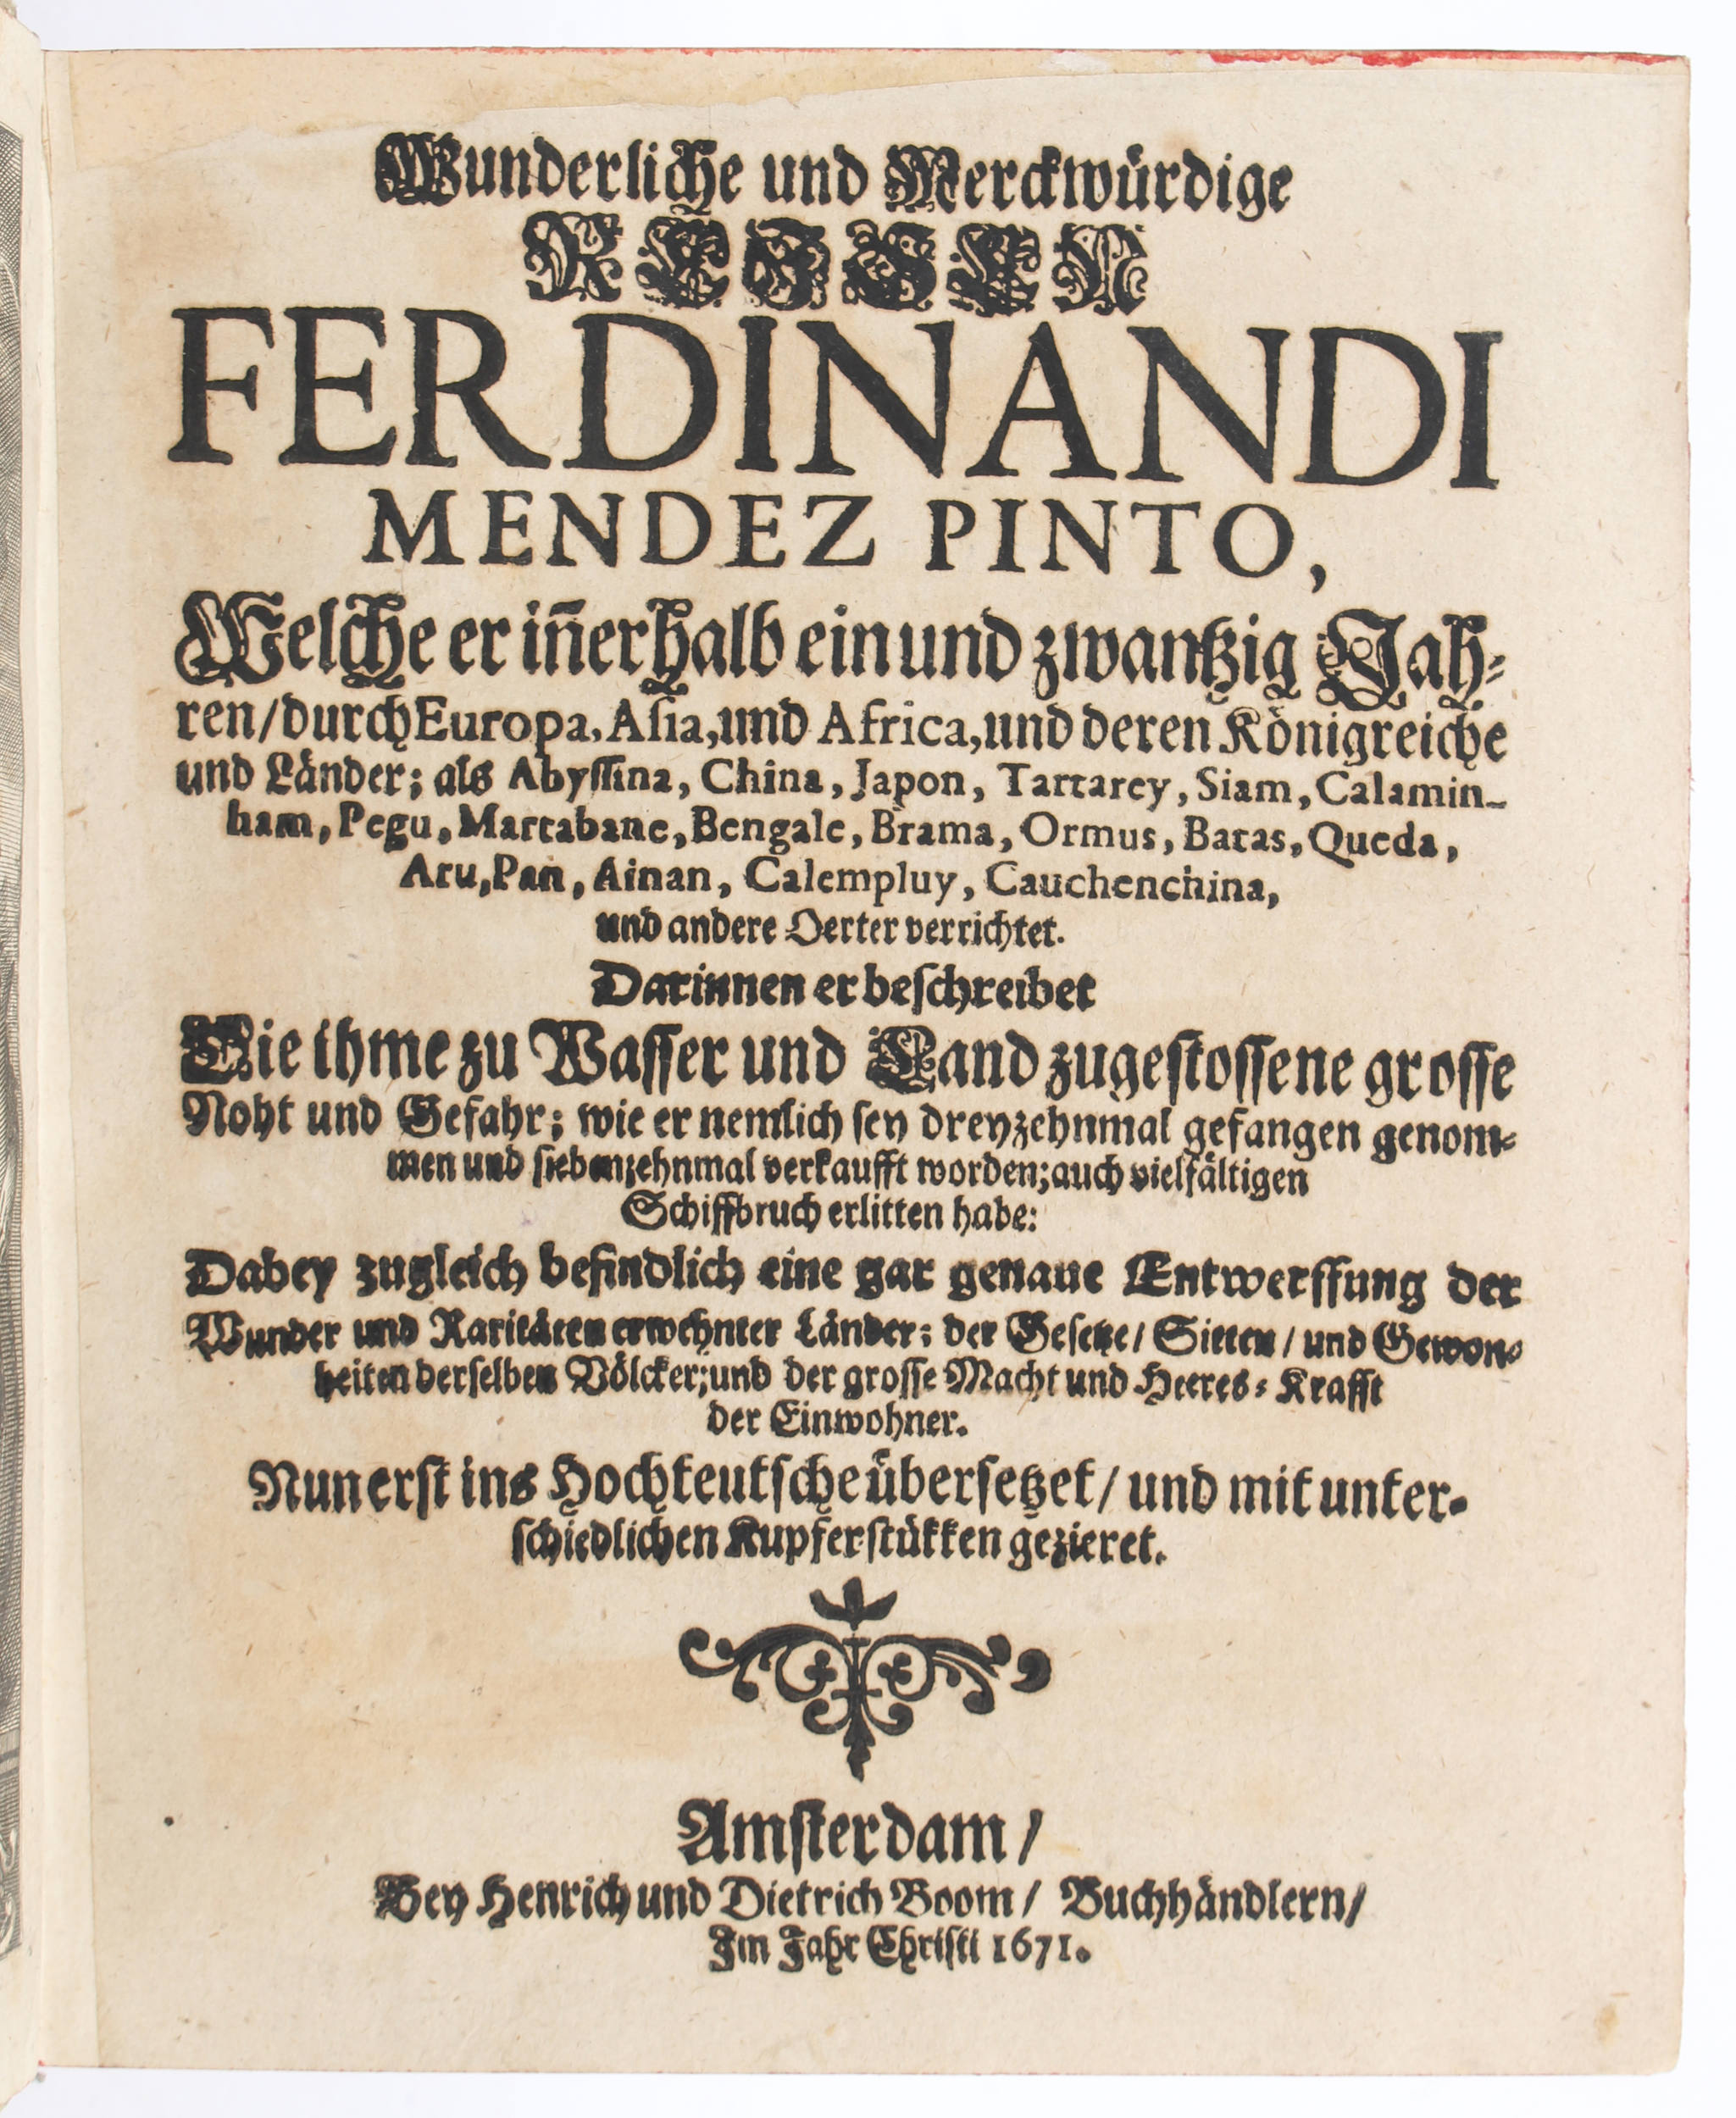 Wunderliche und Merckwürdige
REISEN
FERDINANDI
MENDEZ PINTO,
Welche er iñerhalb ein und zwantzig Jah-
ren/durch Europa, Asia, und Africa, und deren Königreiche
und Länder; als Abyssina, China, Japon, Tartarey, Siam, Calamin-
ham, Pegu, Martabane, Bengale, Brama, Ormus, Batas, Queda,
Aru, Pan, Ainan, Calempluy, Cauchenchina,
und andere Oerter verrichtet.
Darinnen er beschreibet
Die ihme zu Wasser und Land zugestossene grosse
Noht und Gefahr; wie er nemlich sey dreyzehnmal gefangen genom-
men und siebenzehnmal verkaufft worden; auch vielfältigen
Schiffbruch erlitten habe:
Dabey zugleich befindlich eine gar genaue Entwerffung der
Wunder und Raritäten erwehnter Länder; der Gesetze/ Sitten/ und Gewon-
heiten derselben Völcker; und der grosse Macht und Heeres-Krafft
der Einwohner.
Nun erst ins Hochteutsche übersetzet/ und mit unter-
schiedlichen Kupferstükken gezieret.
Amsterdam/
Bey Henrich und Dietrich Boom/ Buchhändlern/
Im Jahr Christi 1671.